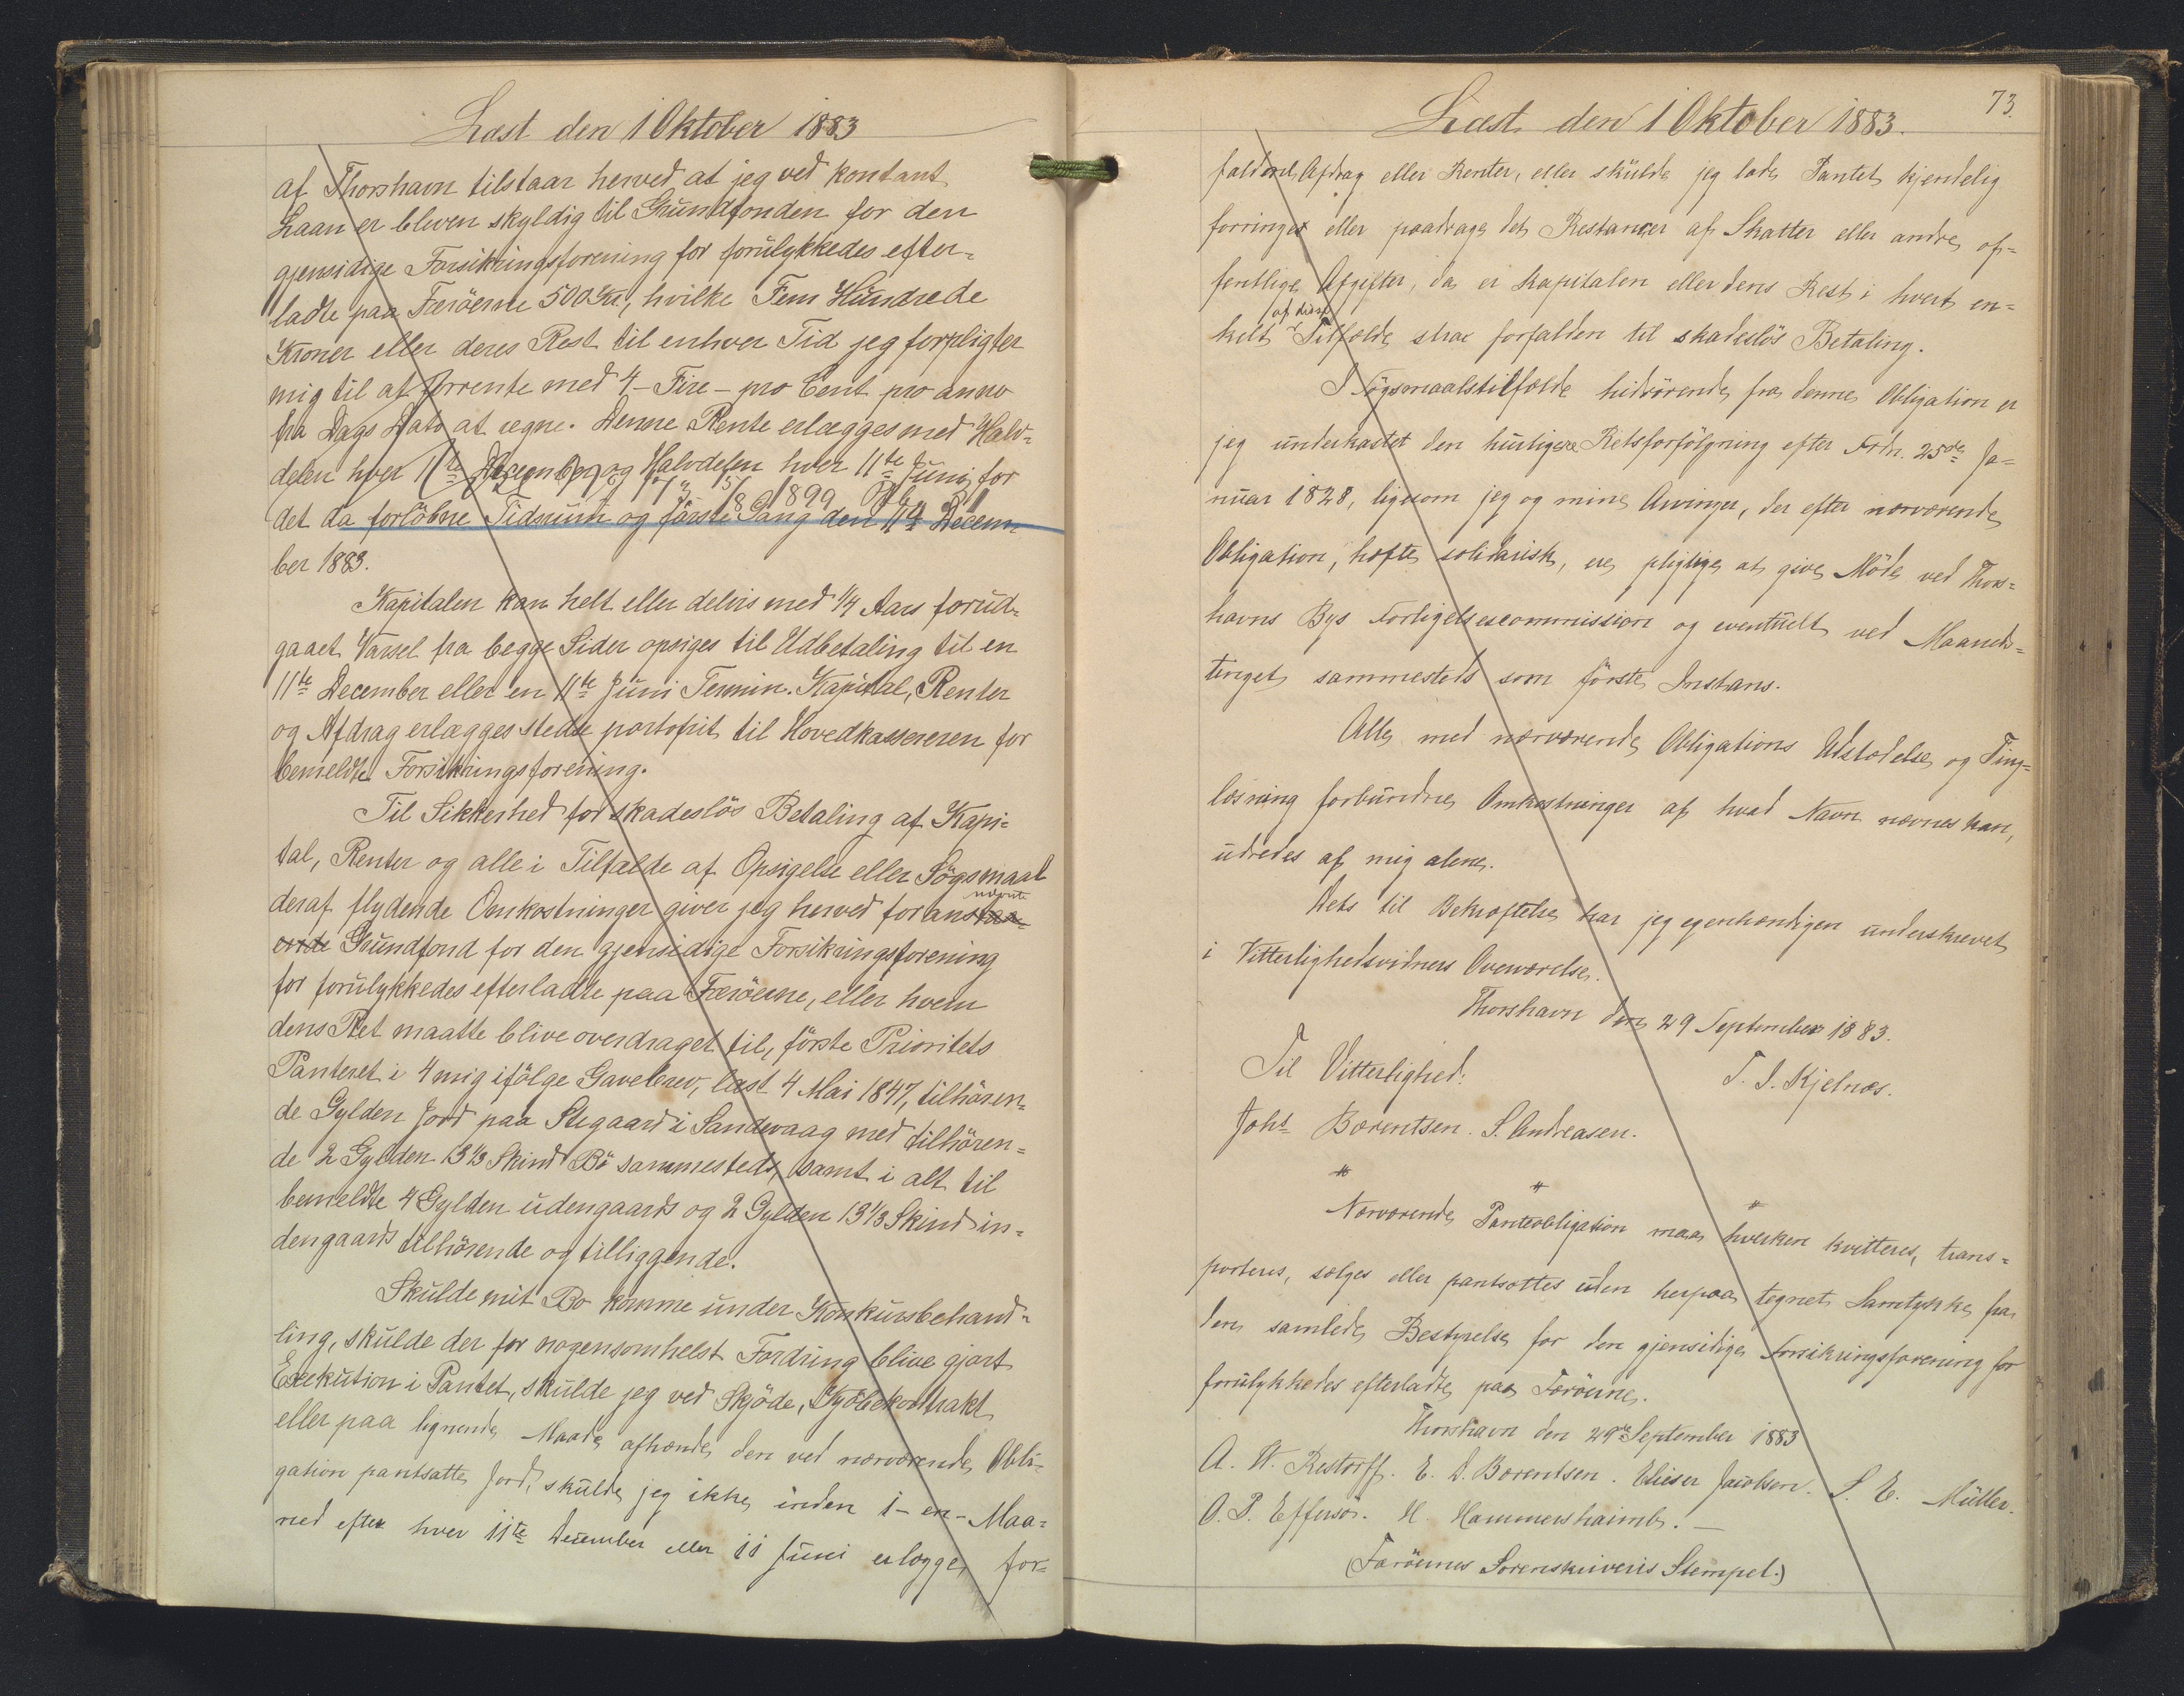 Læst den 1 Oktober 1883
af Thorshavn tilstaar herved at jeg ved kontant
Laan er bleven skyldig til Grundfonden for den
gjensidige Forsikringsforening for forulykkedes efter-
ladte paa Færöerne 500 Kr, hvilke Fem Hundrede
Kroner eller deres Rest til enhver Tid jeg forpligter
mig til at forrente med 4 - Fire - pro Cent pro anno
fra Dags Dato at regne. Denne Rente erlægges med Halv-
delen hver 11te December og Halvdelen hver 11te Juni for
1899
det da forløbne Tidsrum og første Gang den 11te Decem-
ber 1883.
Kapitalen kan helt eller delvis med 1/4 Aars forud-
gaaet Varsel fra begge Sider opsiges til Udbetaling til en
11te December eller en 11te Juni Termin. Kapital, Renter
og Afdrag erlægges stedse portofrit til Hovedkassereren for
bemeldte Forsikringsforening.
Til Sikkerhed for skadeslös Betaling af Kapi-
tal, Renter og alle i Tilfælde af Opsigelse eller Sögsmaal
deraf flydende Omkostninger giver jeg herved foranstaa-
nævnte
ende Grundfond for den gjensidige Forsikringsforening
for forulykkedes efterladte paa Færöerne, eller hvem
dens Ret maatte blive overdraget til, förste Prioritets
Panteret i 4 mig ifölge Gavebrev, læst 4 Mai 1847, tilhören-
de Gylden Jord paa Stegaard i Sandevaag med tilhören-
de 2 Gylden 13 1/3 Skind Bö sammesteds, samt i alt til
bemeldte 4 Gylden udengaards og 2 Gylden 13 1/3 Skind in-
dengaards tilhörende og tilliggende.
Skulde mit Bo komme under Konkursbehand-
ling, skulde der for nogensomhelst Fordring blive gjort
Exekution i Pantet, skulde jeg ved Skjöde, Kjöbekontrakt
eller paa lignende Maade afhænde den ved nærværende Obli-
gation pantsatte Jord, skulde jeg ikke inden 1 - en - Maa-
ned efter hver 11te December eller 11 Juni erlægge for-
73
Læst den 1 Oktober 1883.
faldne Afdrag eller Renter, eller skulde jeg lade Pantet kjendelig
forringes eller paadrage det Restancer af Skatter eller andre of-
fentlige Afgifter, da er Kapitalen eller dens Rest i hvert en-
af disse
kelt Tilfælde strax forfalden til skadeslös Betaling.
I Sögsmaalstilfælde hidrörende fra denne Obligation er
jeg underkastet den hurtigere Retsforfölgning efter Frdn. 25de Ja-
nuar 1828, ligesom jeg og mine Arvinger, der efter nærværende
Obligation, hæfte solidarisk, ere pligtige at give Möde ved Thors-
havns Bys Forligelsescommission og eventuelt ved Maaneds-
tinget sammesteds som förste Instans.
Alle med nærværende Obligations Udstædelse og Ting-
læsning forbundne Omkostninger af hvad Navn nævnes kan,
udredes af mig alene.
Dets til Bekræftelse har jeg egenhændigen underskrevet
i Vitterlighedsvidners Overværelse.
Thorshavn den 29 September 1883.
T. J. Kjelnæs.
Til Vitterlighed:
Johs Bærentsen. S. Andreasen.
" " "
Nærværende Panteobligation maa hverken kvitteres, trans-
porteres, sælges eller pantsættes uden herpaa tegnet Samtykke fra
den samlede Bestyrelse for den gjensidige Forsikringsforening for
forulykkedes efterladte paa Færöerne.
Thorshavn den 29de September 1883
A. W. Restorff. E. D. Bærentsen. Elieser Jacobsen. S. E. Müller.
O. P. Effersöe. H. Hammershaimb. —
(Færöernes Sorenskriveris Stempel.)